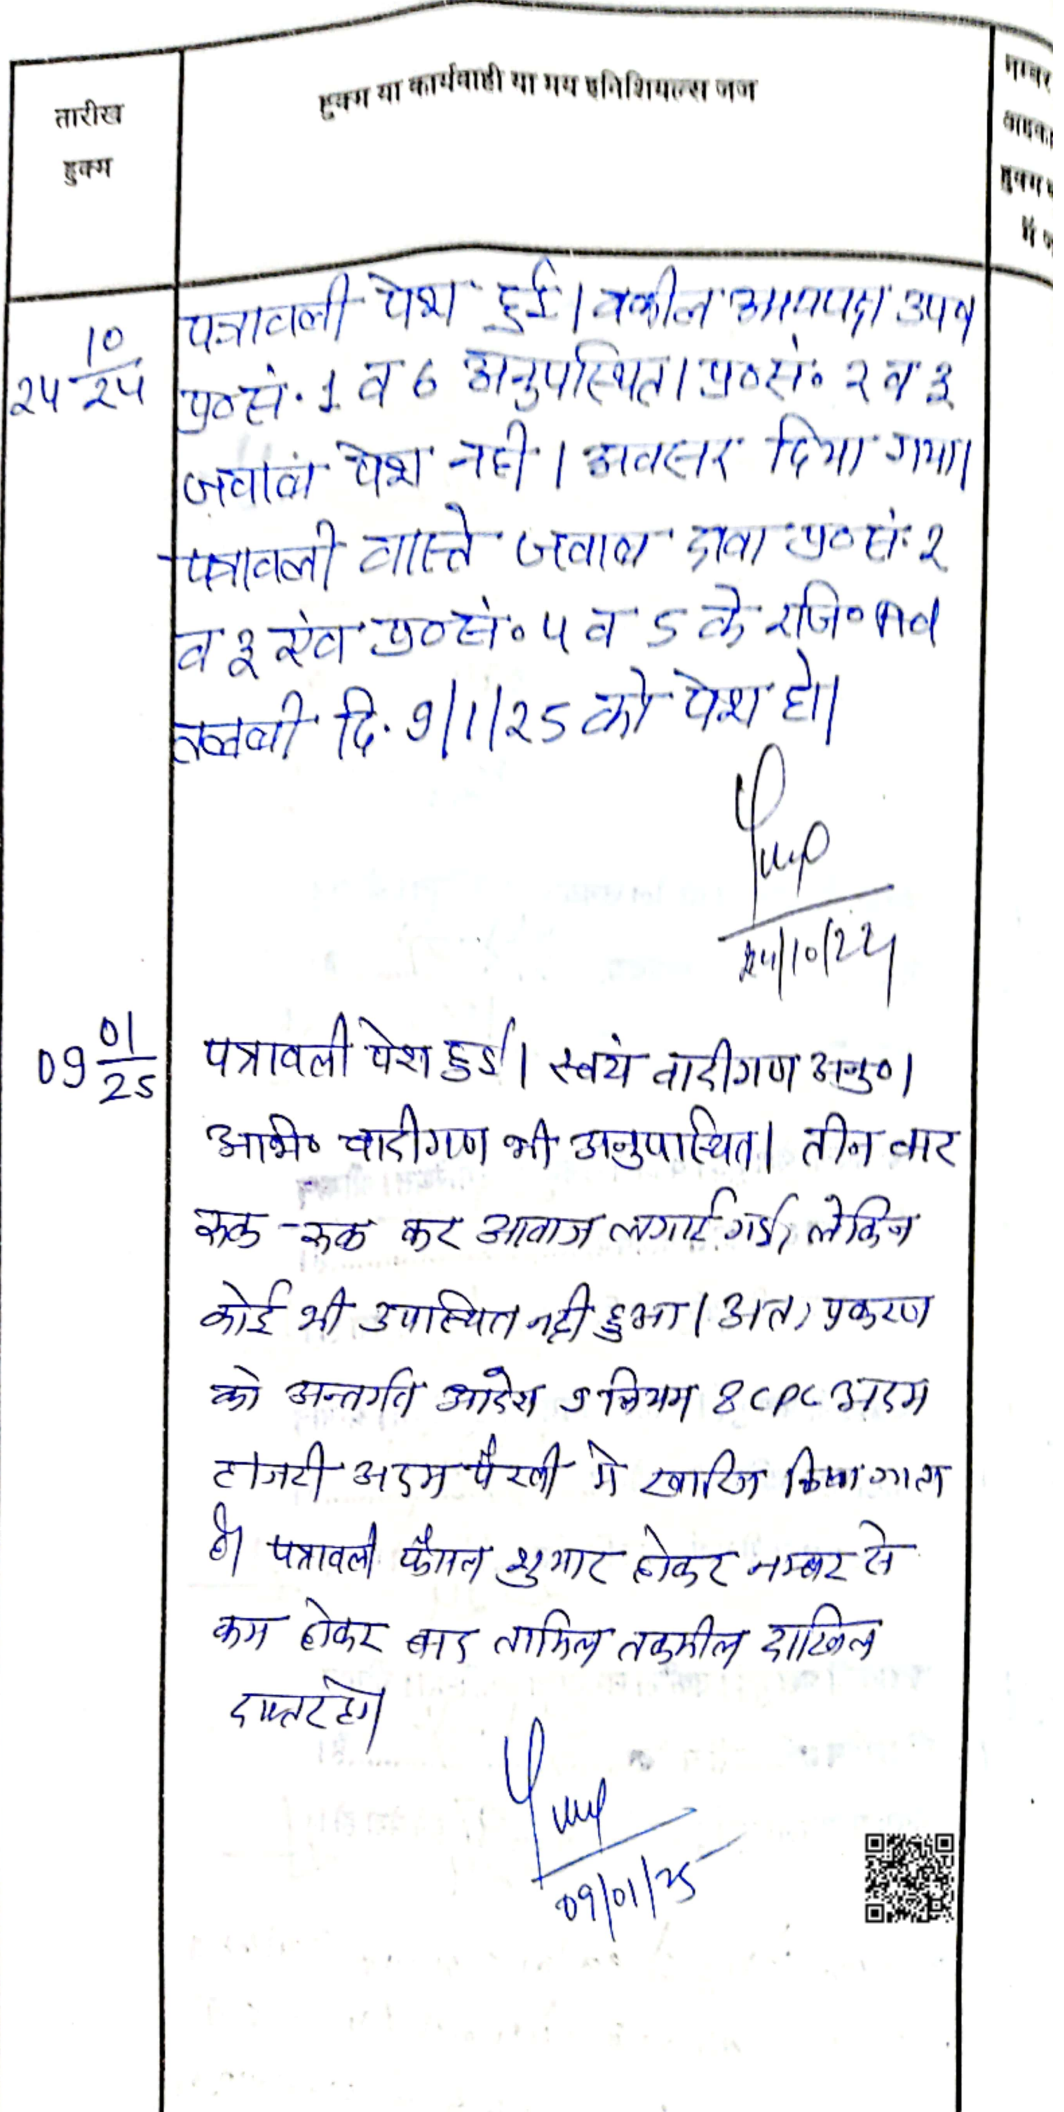 तारीख
हुक्म
हुक्म या कार्यवाही या मय इनिशियल्स जज
नम्बर
हुक्म
24 10/24
पत्रावली पेश हुई। वकील उप०
प्र०सं. 1 व 6 अनुपस्थित। प्र०सं० २ व ३
जवाब पेश नही। अवसर दिया गया।
पत्रावली वास्ते जवाब दावा प्र०सं. २
व ३ एंव प्र०सं० 4 व 5 के रजि०
तलबी दि. 9/1/25 को पेश हो।
24/10/24
09 01/25
पत्रावली पेश हुई। स्वयं वादीगण अनु०।
अभि० वादीगण भी अनुपस्थित। तीन बार
रूक-रूक कर आवाज लगाई गई, लेकिन
कोई भी उपस्थित नही हुआ। अतः प्रकरण
को अन्तर्गत आदेश 9 नियम 8 CPC अदम
हाजरी अदम पैरवी मे खारिज किया जाता
है। पत्रावली फैसल शुमार होकर नम्बर से
कम होकर बाद तामिल तकमील दाखिल
दफ्तर हो।
09/01/25